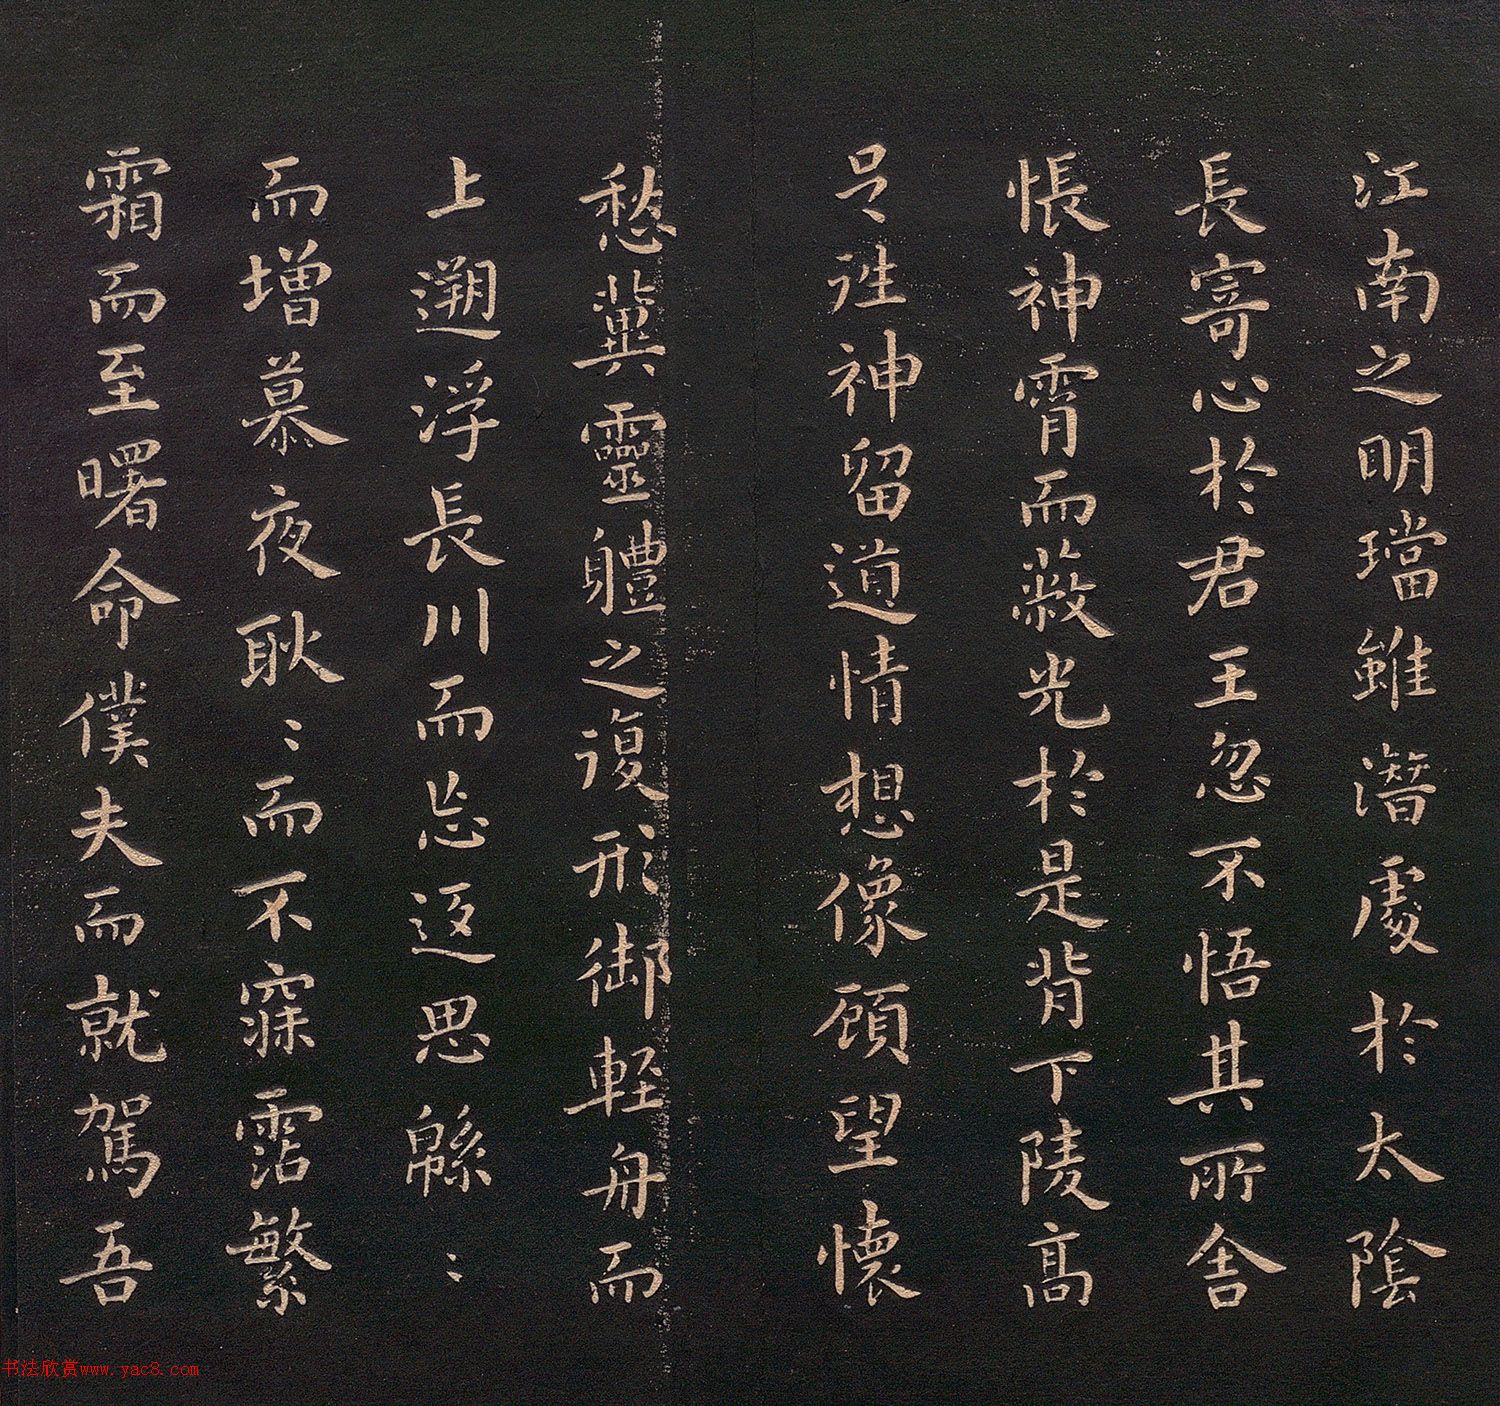 江南之明璫雖潛處於太陰
長寄心於君王忽不悟其所舍
悵神霄而蔽光於是背下陵高
足往神留遺情想像顧望懷
愁冀靈體之復形御輕舟而
上遡浮長川而忘返思緜〻
而增慕夜耿〻而不寐霑繁
霜而至曙命僕夫而就駕吾
书法欣赏www.yac8.com